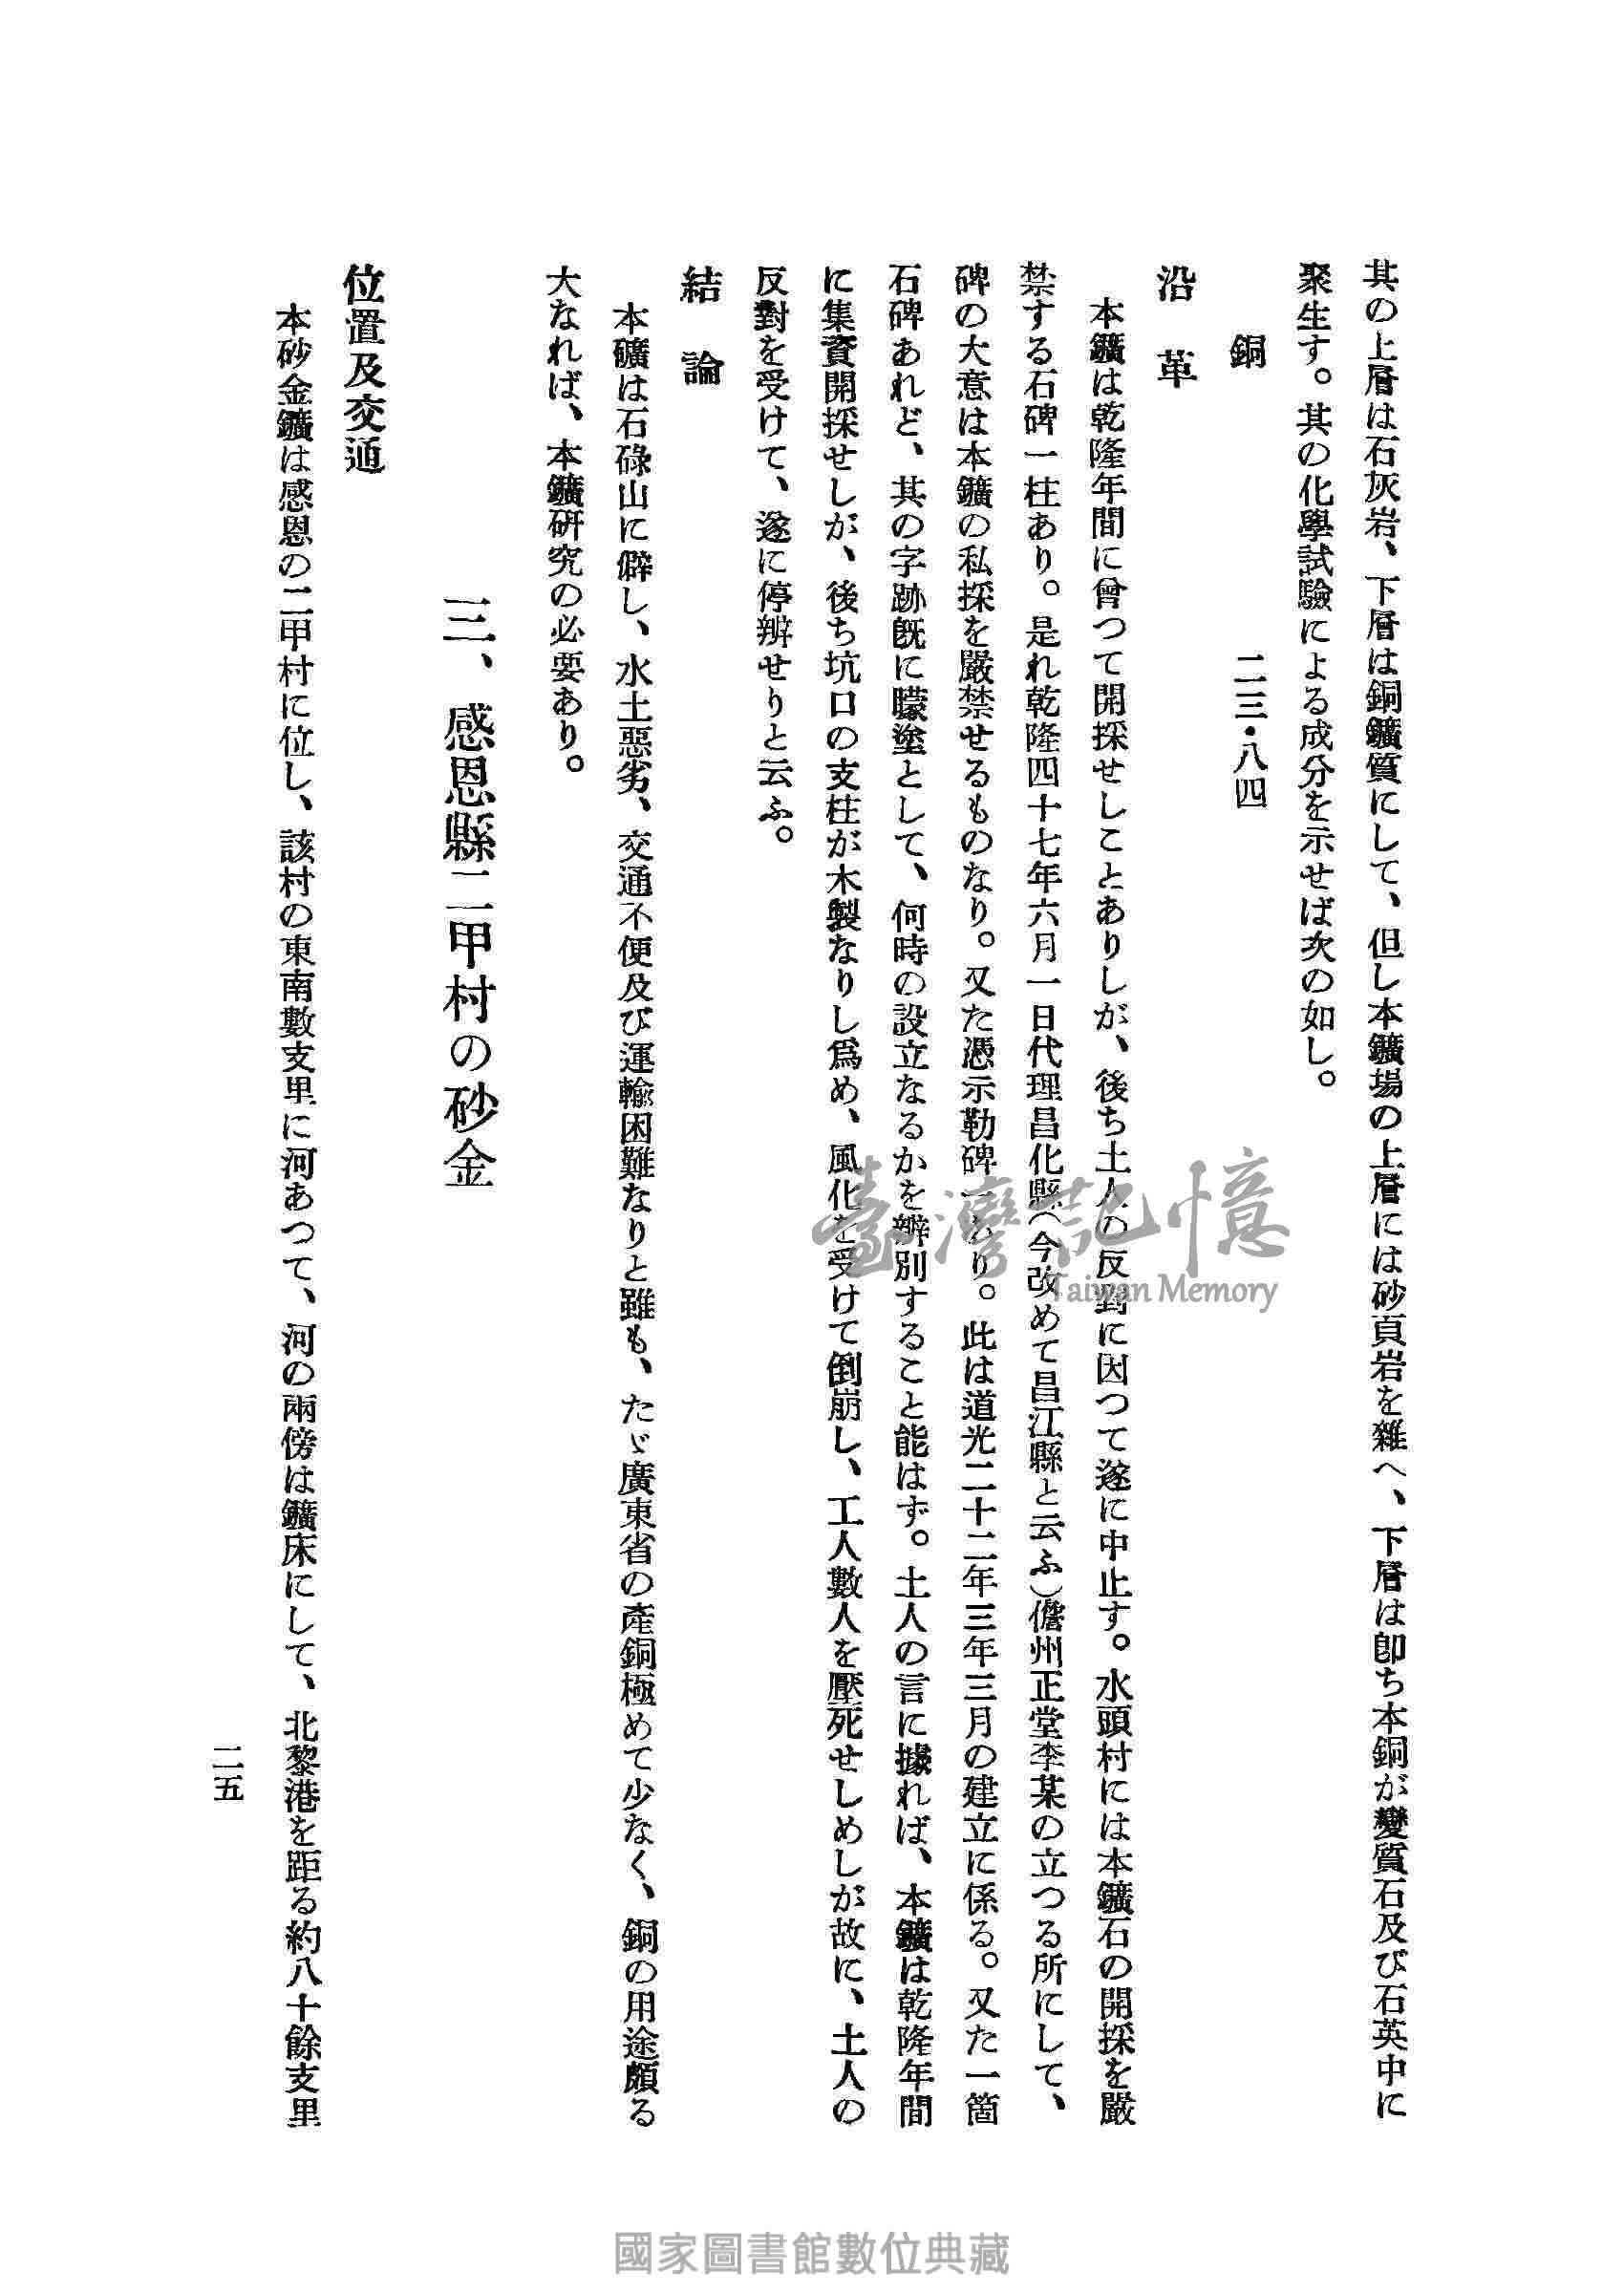 其の上層は石灰岩、下層は銅鑛質にして、但し本鑛場の上層には砂頁岩を雜へ、下層は卽ち本銅が變質石及び石英中に
聚生す。其の化學試驗による成分を示せば次の如し。
銅 二三・八四
沿革
本鑛は乾隆年間に曾つて開採せしことありしが、後ち土人の反對に因つて遂に中止す。水頭村には本鑛石の開採を嚴
禁する石碑一柱あり。是れ乾隆四十七年六月一日代理昌化縣(今改めて昌江縣と云ふ)儋州正堂李某の立つる所にして、
碑の大意は本鑛の私採を嚴禁せるものなり。又た憑示勒碑一あり。此は道光二十二年三年三月の建立に係る。又た一箇
石碑あれど、其の字跡旣に曚塗として、何時の設立なるかを辨別すること能はず。土人の言に據れば、本鑛は乾隆年間
に集資開採せしが、後ち坑口の支柱が木製なりし爲め、風化を受けて倒崩し、工人數人を壓死せしめしが故に、土人の
反對を受けて、遂に停辨せりと云ふ。
結論
本礦は石碌山に僻し、水土惡劣、交通不便及び運輸困難なりと雖も、たゞ廣東省の產銅極めて少なく、銅の用途頗る
大なれば、本鑛硏究の必要あり。
三、感恩縣二甲村の砂金
位置及交通
本砂金鑛は感恩の二甲村に位し、該村の東南數支里に河あつて、河の兩傍は鑛床にして、北黎港を距る約八十餘支里
二五
臺灣記憶
Taiwan Memory
國家圖書館數位典藏